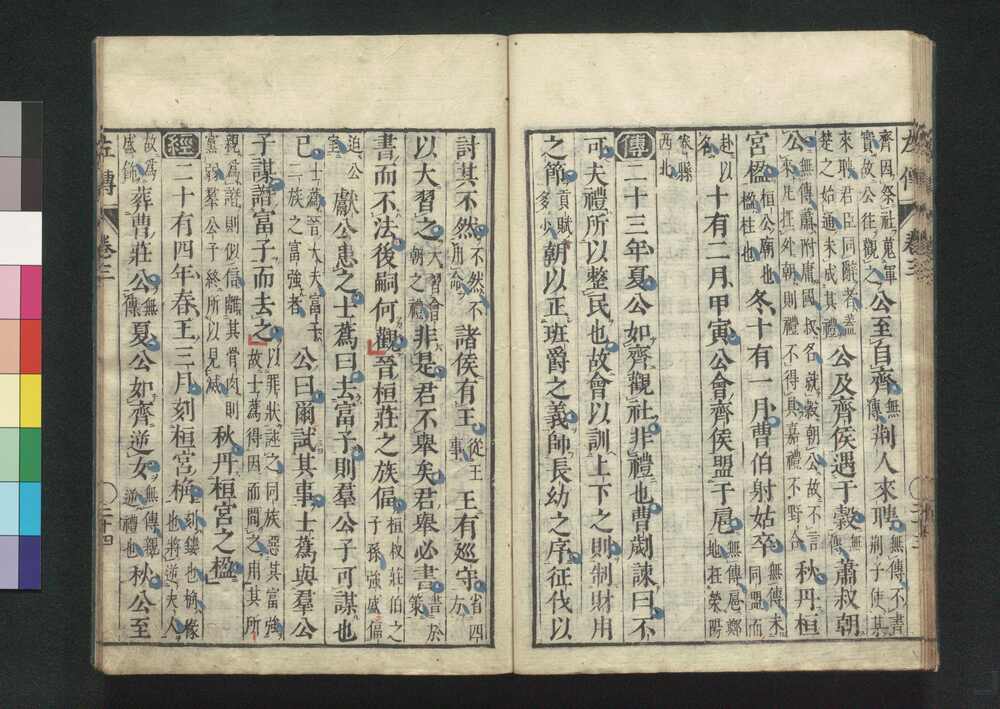 左傳 卷三
齊因祭社蒐軍實故公往觀之公至自齊無傳荆人來聘無傳不書荆子使某
來聘君臣同辭者蓋楚之始通未成其禮公及齊侯遇于穀無傳蕭叔朝
公無傳蕭附庸國叔名就穀朝公故不言來凡在外朝則禮不得具嘉禮不野合秋丹桓
宮楹桓公廟也楹柱也冬十有一月曹伯射姑卒無傳未同盟而
赴以名十有二月甲寅公會齊侯盟于扈無傳扈鄭地在滎陽
卷縣西北
傳二十三年夏公如齊觀社非禮也曹劌諫曰不
可夫禮所以整民也故會以訓上下之則制財用
之節貢賦多少朝以正班爵之義帥長幼之序征伐以
討其不然不然不用命諸侯有王從王事王有巡守省四方
以大習之大習會朝之禮非是君不舉矣君舉必書書於策
書而不法後嗣何觀晉桓莊之族偪桓叔莊伯之子孫強盛偪
迫公室獻公患之士蒍曰去富子則羣公子可謀也
已士蒍晉大夫富子二族之富強者公曰爾試其事士蒍與羣公
子謀譖富子而去之以罪狀誣之同族惡其富強故士蒍得因而間之用其所
親爲譖則似信離其骨肉則黨弱羣公子終所以見滅秋丹桓宮之楹
經二十有四年春王三月刻桓宮桷刻鏤也桷椽也將逆夫人
故爲盛飾葬曹莊公無傳夏公如齊逆女無傳親逆禮也秋公至
左傳 卷三 二十四